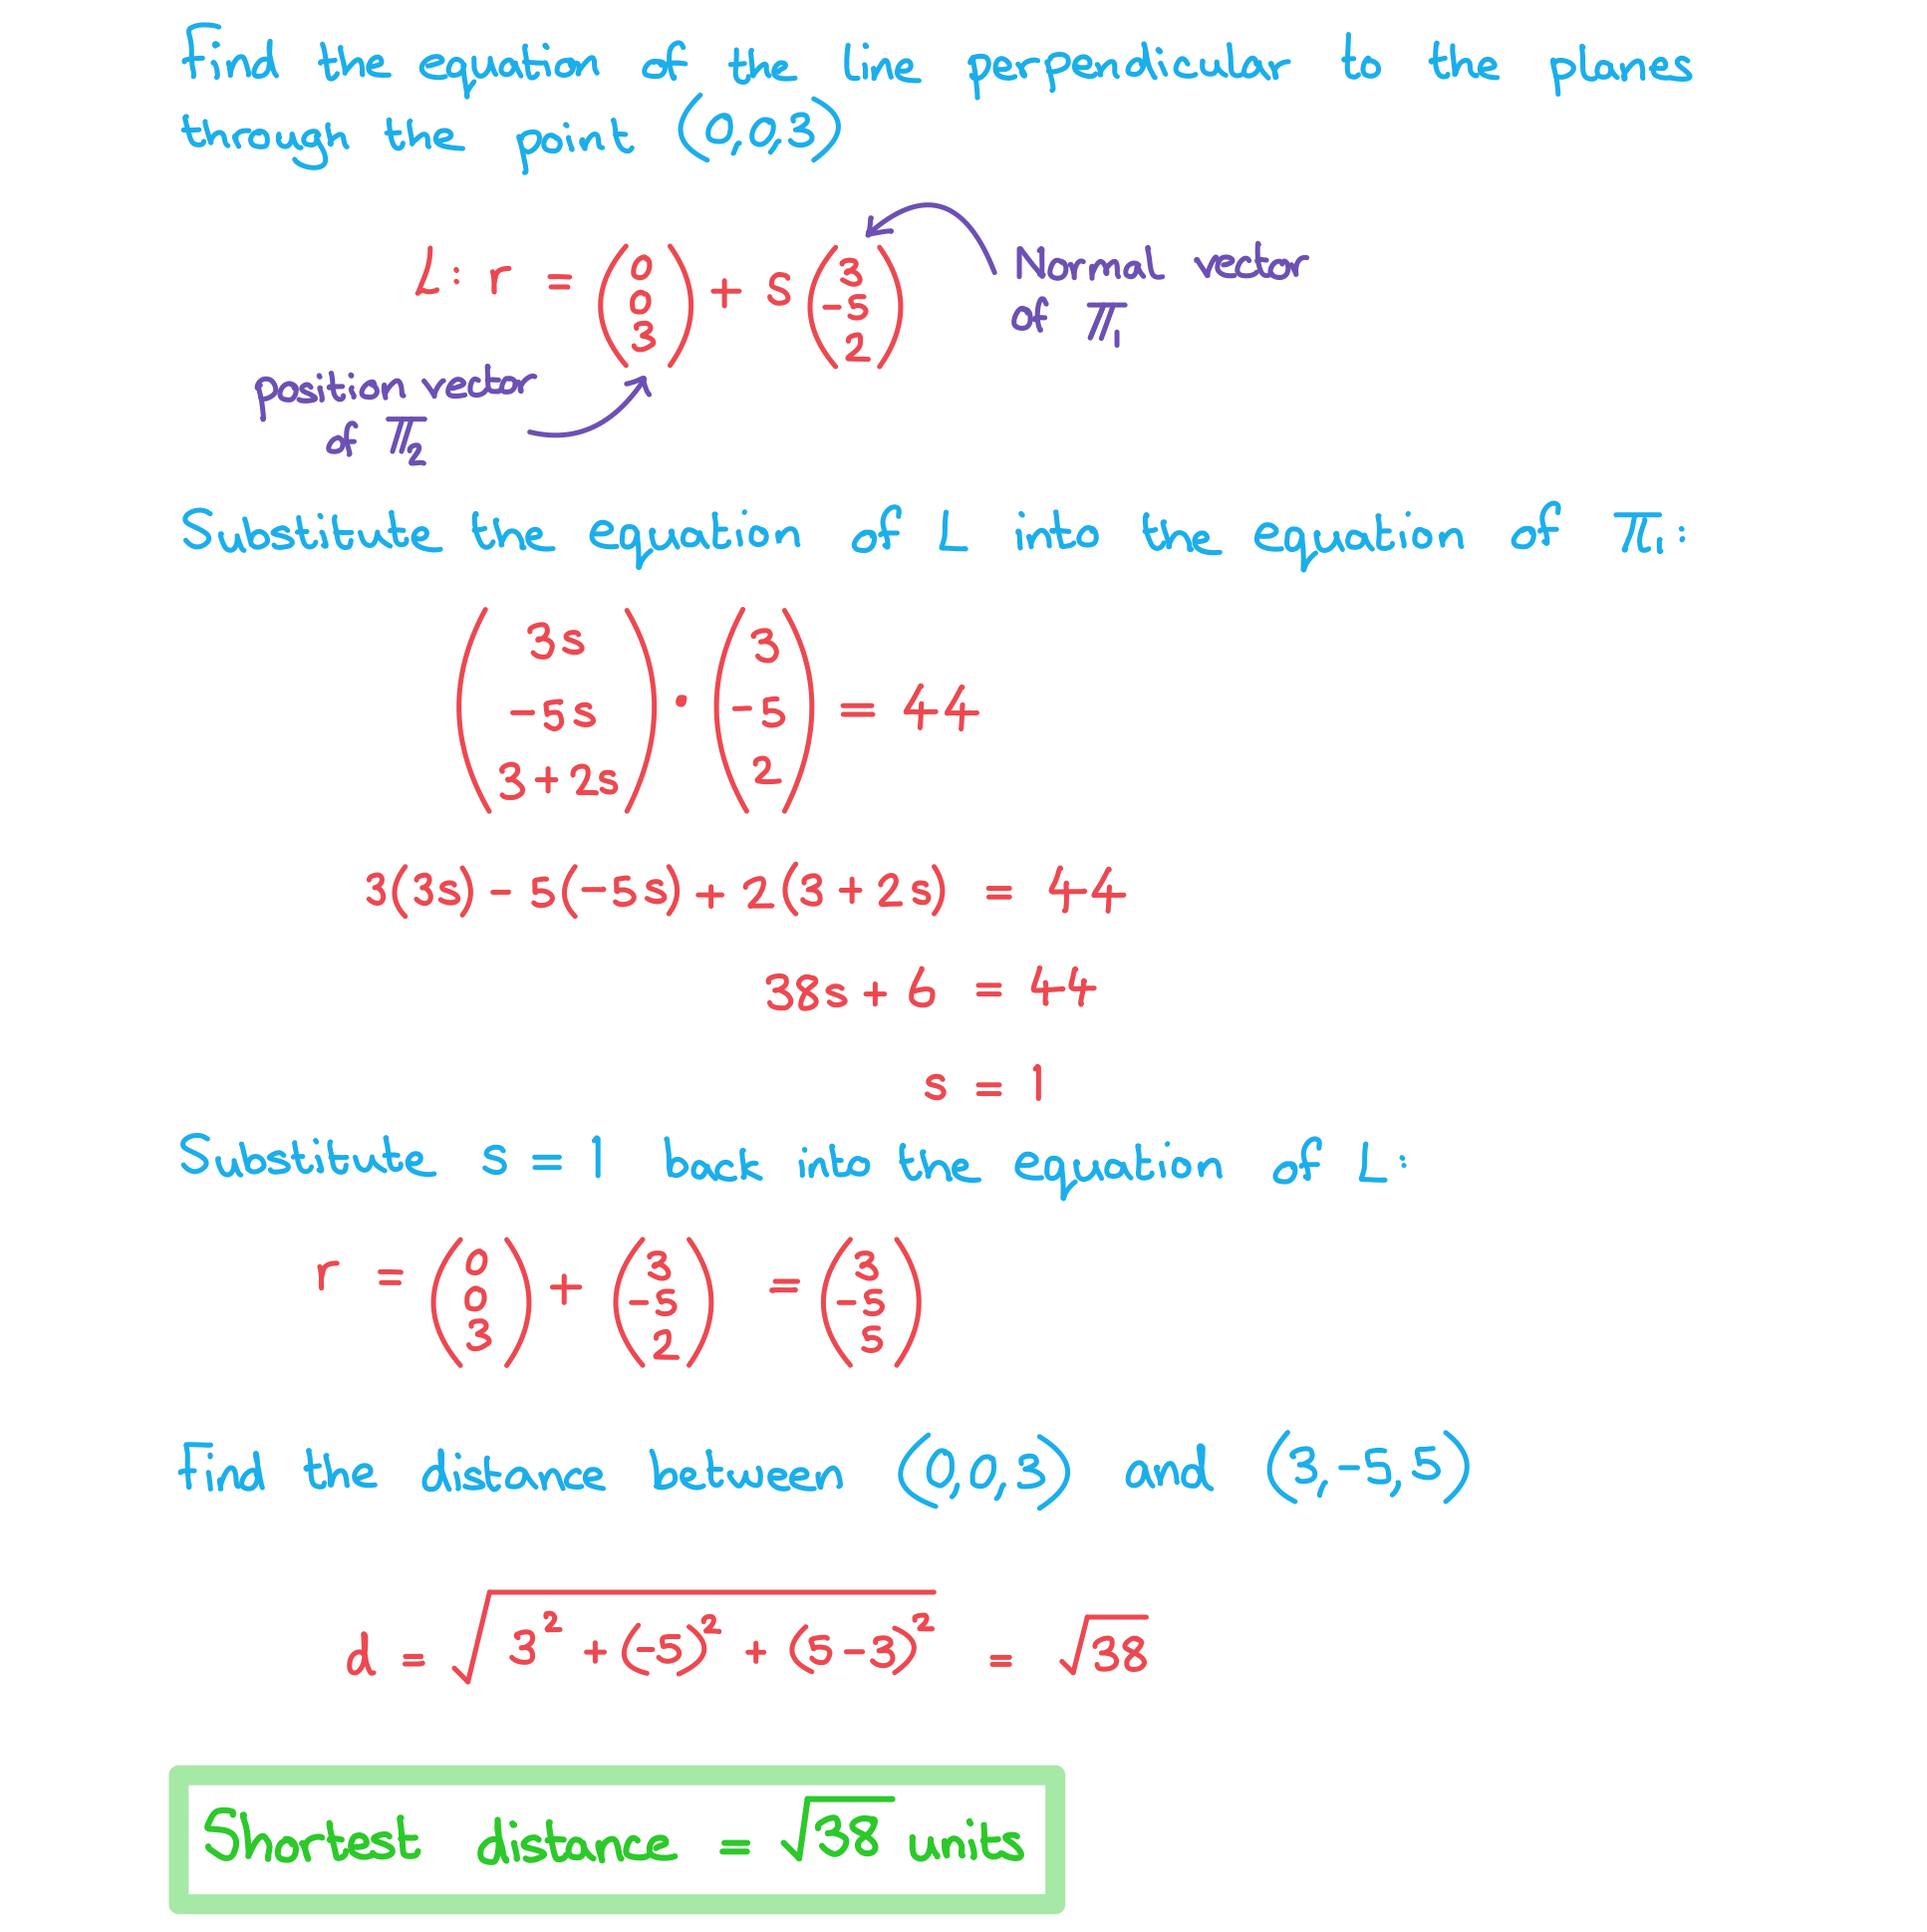 Find the equation of the line perpendicular to the planes
through the point (0,0,3)
L: r = (0 0 3) + s (3 -5 2)
Normal vector
of π₁
position vector
of π₂
Substitute the equation of L into the equation of π₁:
(3s -5s 3+2s) · (3 -5 2) = 44
3(3s) - 5(-5s) + 2(3+2s) = 44
38s + 6 = 44
s = 1
Substitute s = 1 back into the equation of L:
r = (0 0 3) + (3 -5 2) = (3 -5 5)
Find the distance between (0,0,3) and (3,-5,5)
d = √(3² + (-5)² + (5-3)²) = √38
Shortest distance = √38 units